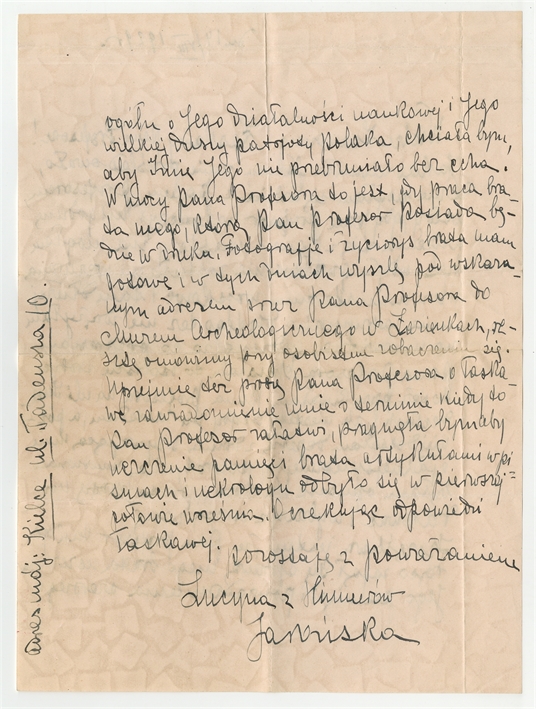 ogółu o Jego działalności naukowej i Jego
wielkiej duszy patrjoty polaka, chciała bym,
aby Imię Jego nie przebrzmiało bez echa.
W mocy Pana Profesora to jest, gdy praca bra-
ta mego, którą Pan Profesor posiada bę-
dzie w druku. Fotografję i życiorys brata mam
gotowe i w tych dniach wyszlę pod wskaza-
nym adresem przez Pana Profesora do
Muzeum Archeologicznego w Łazienkach, re-
sztę omówimy przy osobistem zobaczeniu się.
Uprzejmie też proszę Pana Profesora o łaska-
we zawiadomienie mnie o terminie kiedy to
Pan Profesor załatwi, pragnęła bym aby
uczczenie pamięci brata artykułami w pi-
smach i nekrologu odbyło się w pierwszej
połowie września. Oczekując odpowiedzi
łaskawej.
pozostaję z poważaniem
Lucyna z
Jasińska
adres mój: Kielce ul. Tadeusza 10.